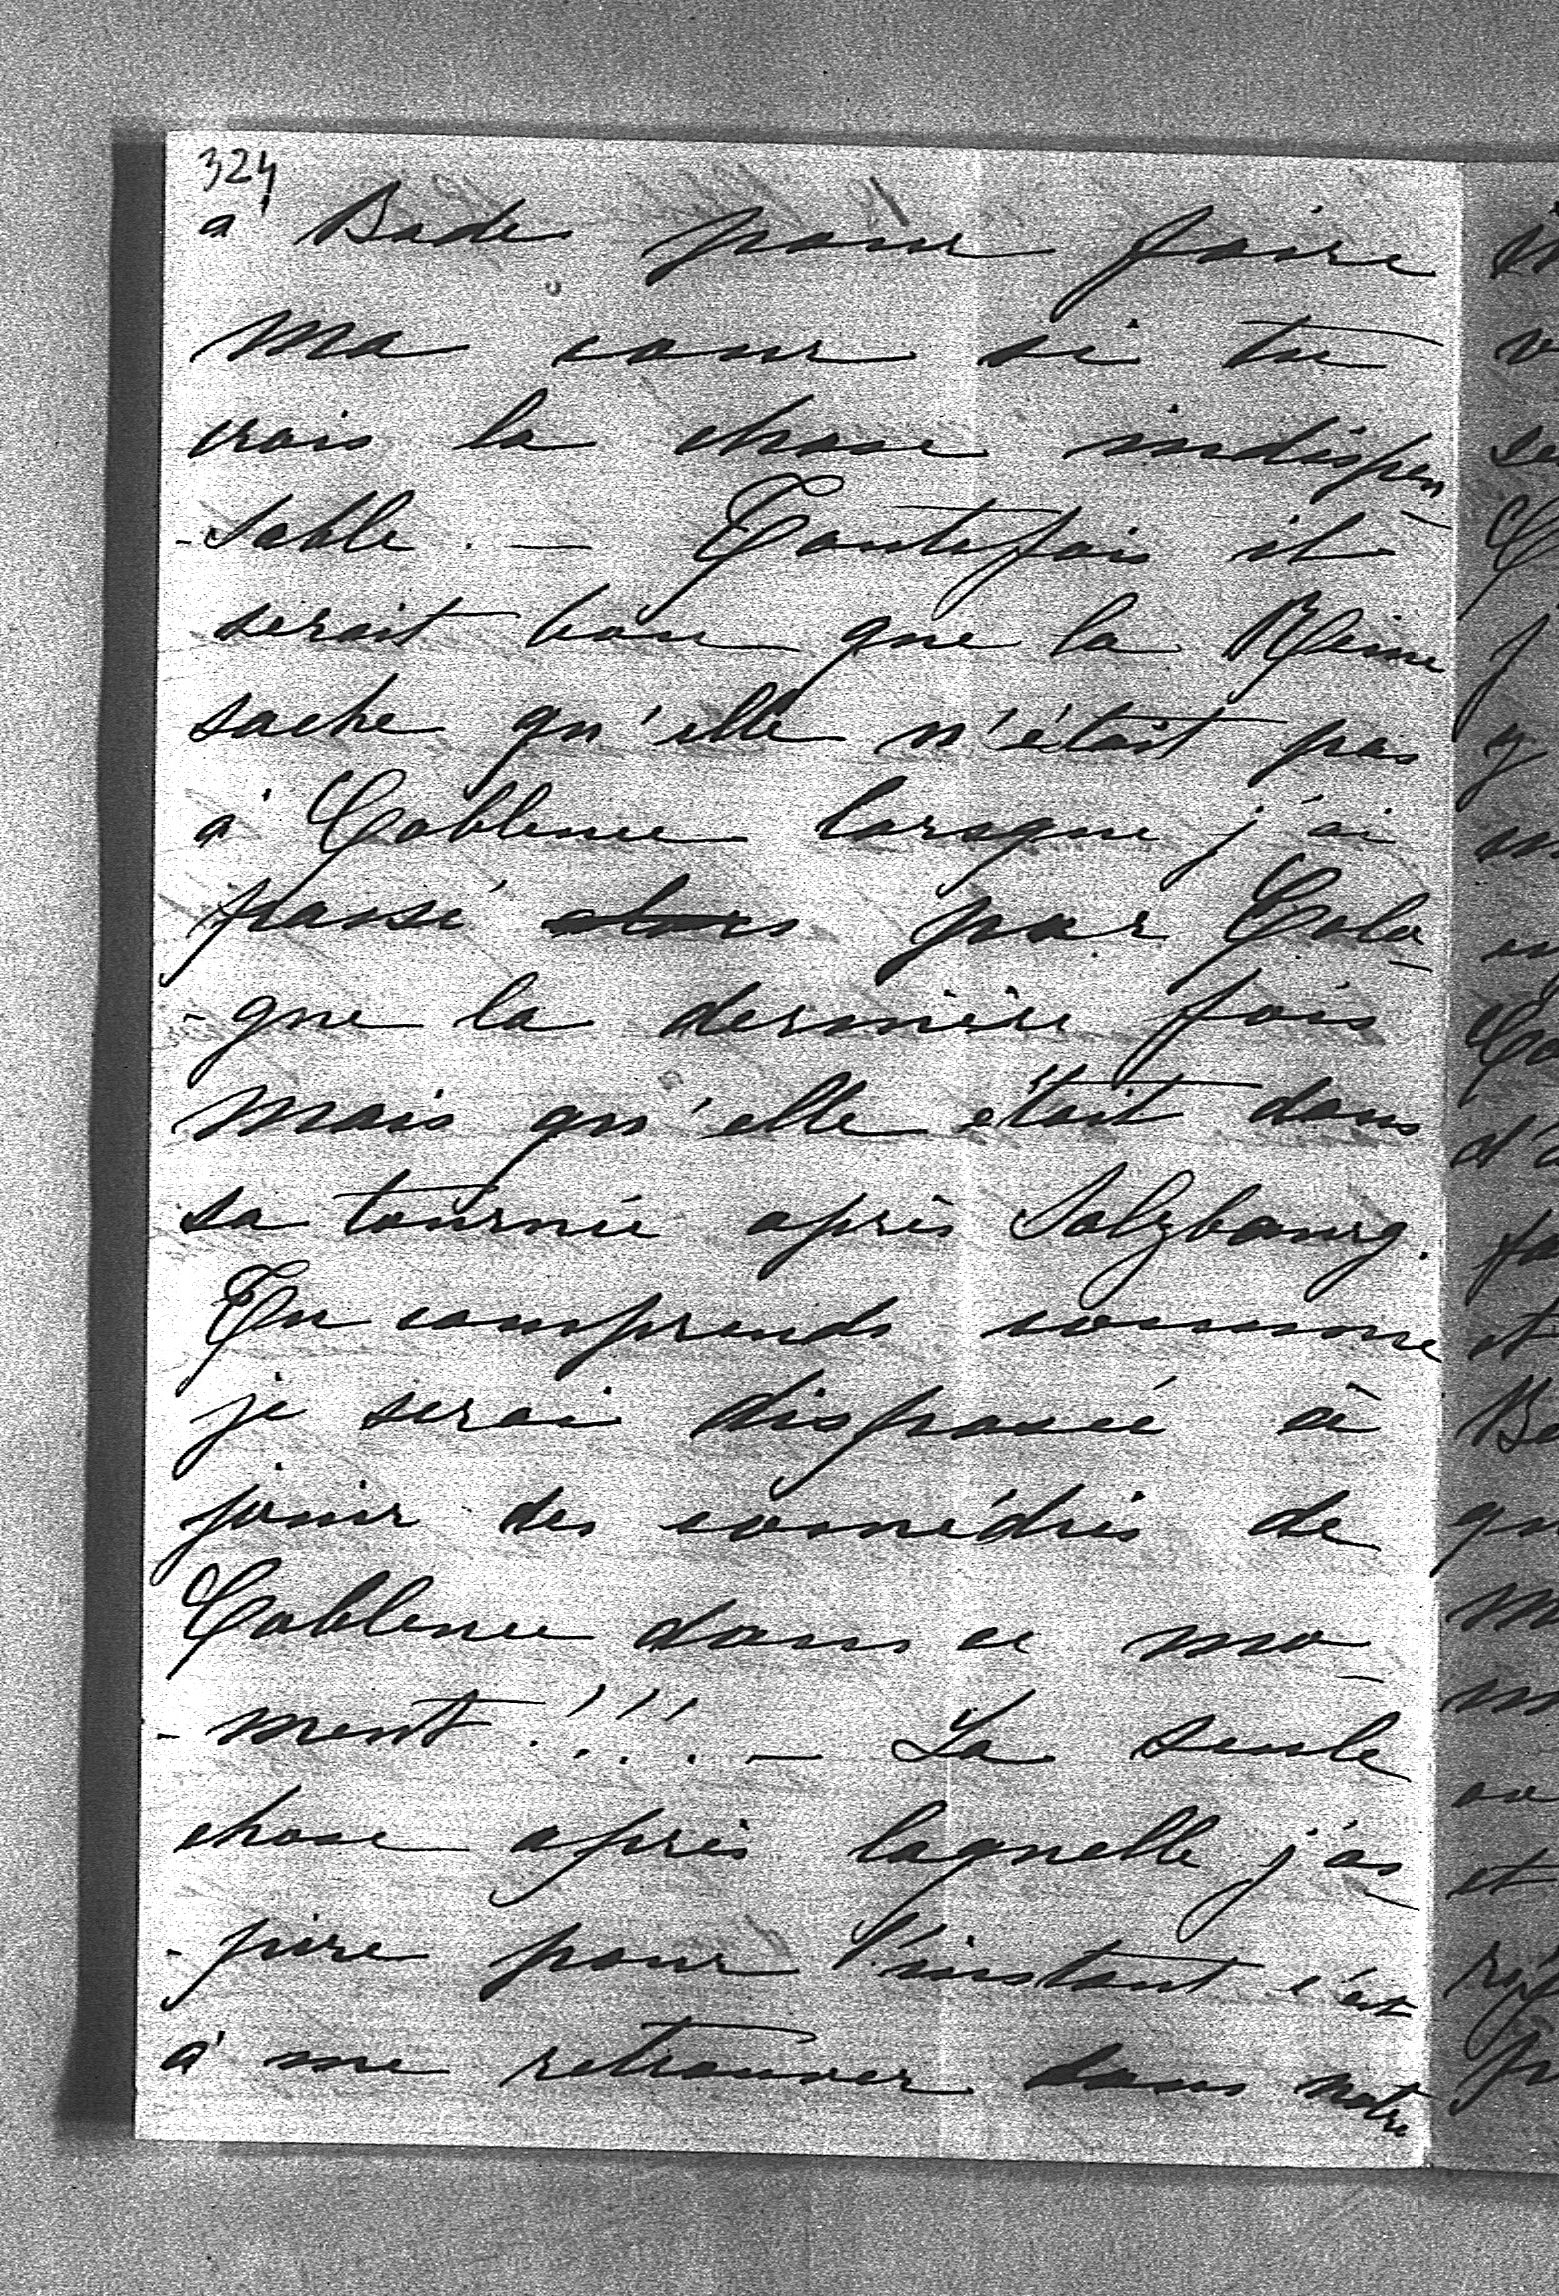 324
à Bade pour faire
ma cour si tu
crois la chose indispen
-sable. — Toutefois il
serait bon que la Reine
sache qu'elle n'était pas
à Coblence lorsque j'ai
passé alors par Colo-
-gne la dernière fois
mais qu'elle était dans
sa tournée après Salzbourg.
Tu comprends comme
je serai disposée à
jouir des comédies de
Coblence dans ce mo-
-ment!!! — La seule
chose après laquelle j'as-
-pire pour l'instant c'est
à me retrouver dans notre